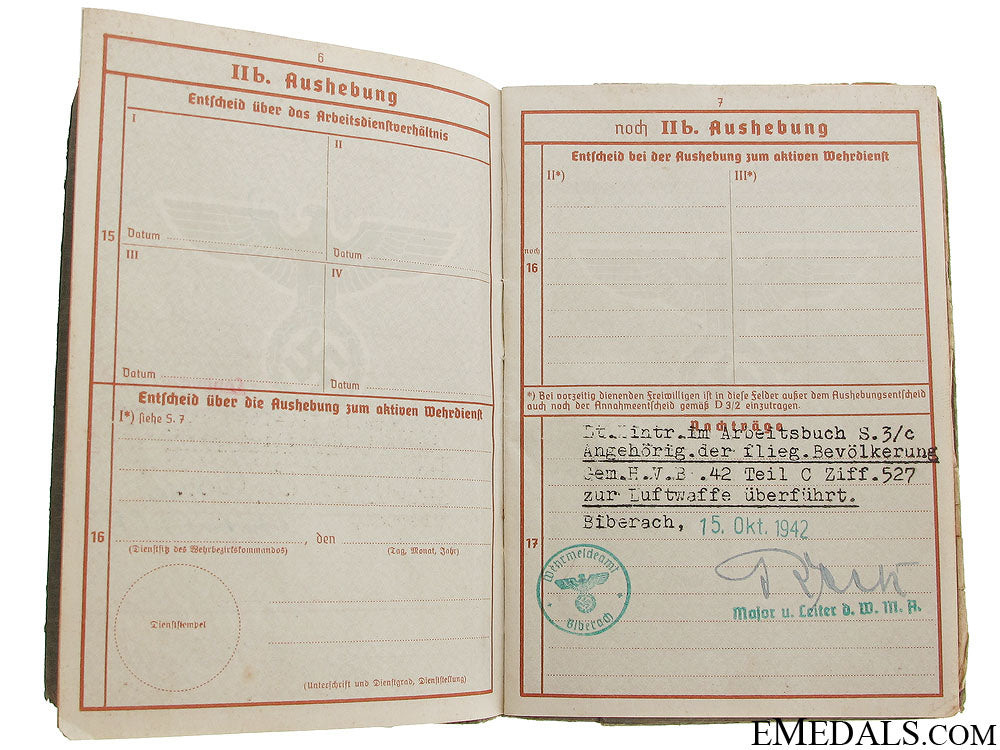 6
IIb. Aushebung
Entscheid über das Arbeitsdienstverhältnis
I
II
15
Datum
Datum
III
IV
Datum
Datum
Entscheid über die Aushebung zum aktiven Wehrdienst
I*) siehe S. 7
16
, den
(Dienstsitz des Wehrbezirkskommandos)
(Tag, Monat, Jahr)
Dienststempel
(Unterschrift und Dienstgrad, Dienststellung)
7
noch IIb. Aushebung
Entscheid bei der Aushebung zum aktiven Wehrdienst
II*)
III*)
noch
16
*) Bei vorzeitig dienenden Freiwilligen ist in diese Felder außer dem Aushebungsentscheid
auch noch der Annahmeentscheid gemäß D 3/2 einzutragen.
Nachträge
Lt.Eintr.im Arbeitsbuch S.3/c
Angehörig.der flieg.Bevölkerung
Gem.H.V.B .42 Teil C Ziff.527
zur Luftwaffe überführt.
Biberach, 15. Okt. 1942
17
Wehrmeldeamt
Biberach
Major u. Leiter d. W. M. A.
EMEDALS.COM